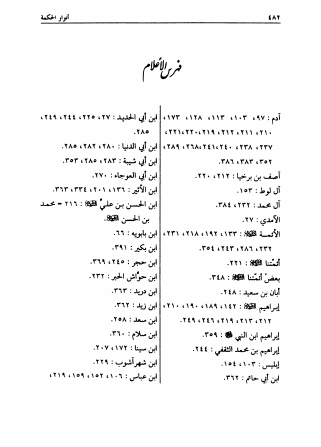 ٤٨٢
أنوار الحكمة
فهرس الأعلام
آدم : ٩٧، ١٠٣، ١١٣، ١٢٨، ١٧٣،
٢١٠، ٢١١، ٢١٢، ٢١٩، ٢٢٠، ٢٢١،
٢٣٧، ٢٣٨، ٢٤٠، ٢٤١، ٢٦٨، ٢٨٩،
٣٥٢، ٣٨٣، ٣٨٦.
آصف بن برخيا : ٢١٢، ٢٢٠.
آل لوط : ١٥٣.
آل محمد : ٢٣٢، ٣٨٤.
الآمدي : ٢٧.
الأئمة : ١٣٣، ١٩٢، ٢١٨، ٢٣١،
٢٣٢، ٢٨٦، ٢٤٣، ٣٥٤.
أئمتنا : ٢٢١.
بعض أئمتنا : ٣٤٨.
أبان بن سعيد : ٢٤٨.
إبراهيم : ١٤٢، ١٨٩، ١٩٠، ٢١٠،
٢١٢، ٢١٣، ٢١٩، ٢٤٦، ٢٤٩.
إبراهيم ابن النبي : ٣٥٩.
إبراهيم بن محمد الثقفي : ٢٤٤.
إبليس : ١٠٣، ١٥٤.
ابن أبي حاتم : ٣٦٢.
ابن أبي الحديد : ٢٧، ٢٢٥، ٢٤٤، ٢٤٩،
٢٨٥.
ابن أبي الدنيا : ٢٨٠، ٢٨٢، ٢٨٥.
ابن أبي شيبة : ٢٨٣، ٢٨٥، ٣٥٣.
ابن أبي العوجاء : ٢٧٠.
ابن الأثير : ١٣٦، ٢٠١، ٣٣٤، ٣٦٣.
ابن الحسن بن علي : ٢١٦ = محمد
بن الحسن
ابن بابويه : ٦٦.
ابن بكير : ٣٩١.
ابن حجر : ٢٤٥، ٣٦٩.
ابن حوّاش الحبر : ٢٣٢.
ابن دريد : ٣٦٣.
ابن زيد : ٣٦٢.
ابن سعد : ٢٥٨.
ابن سلام : ٣٦٠.
ابن سينا : ١٧٢، ٢٠٧.
ابن شهرآشوب : ٢٢٩.
ابن عباس : ١٠٦، ١٥٢، ١٥٩، ٢١٩،